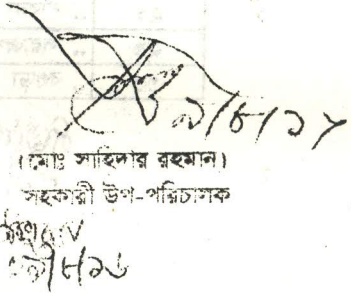 ৯/৮/১৮
(মোঃ সাহিদার রহমান)
সহকারী উপ-পরিচালক
৯/৮/১৮